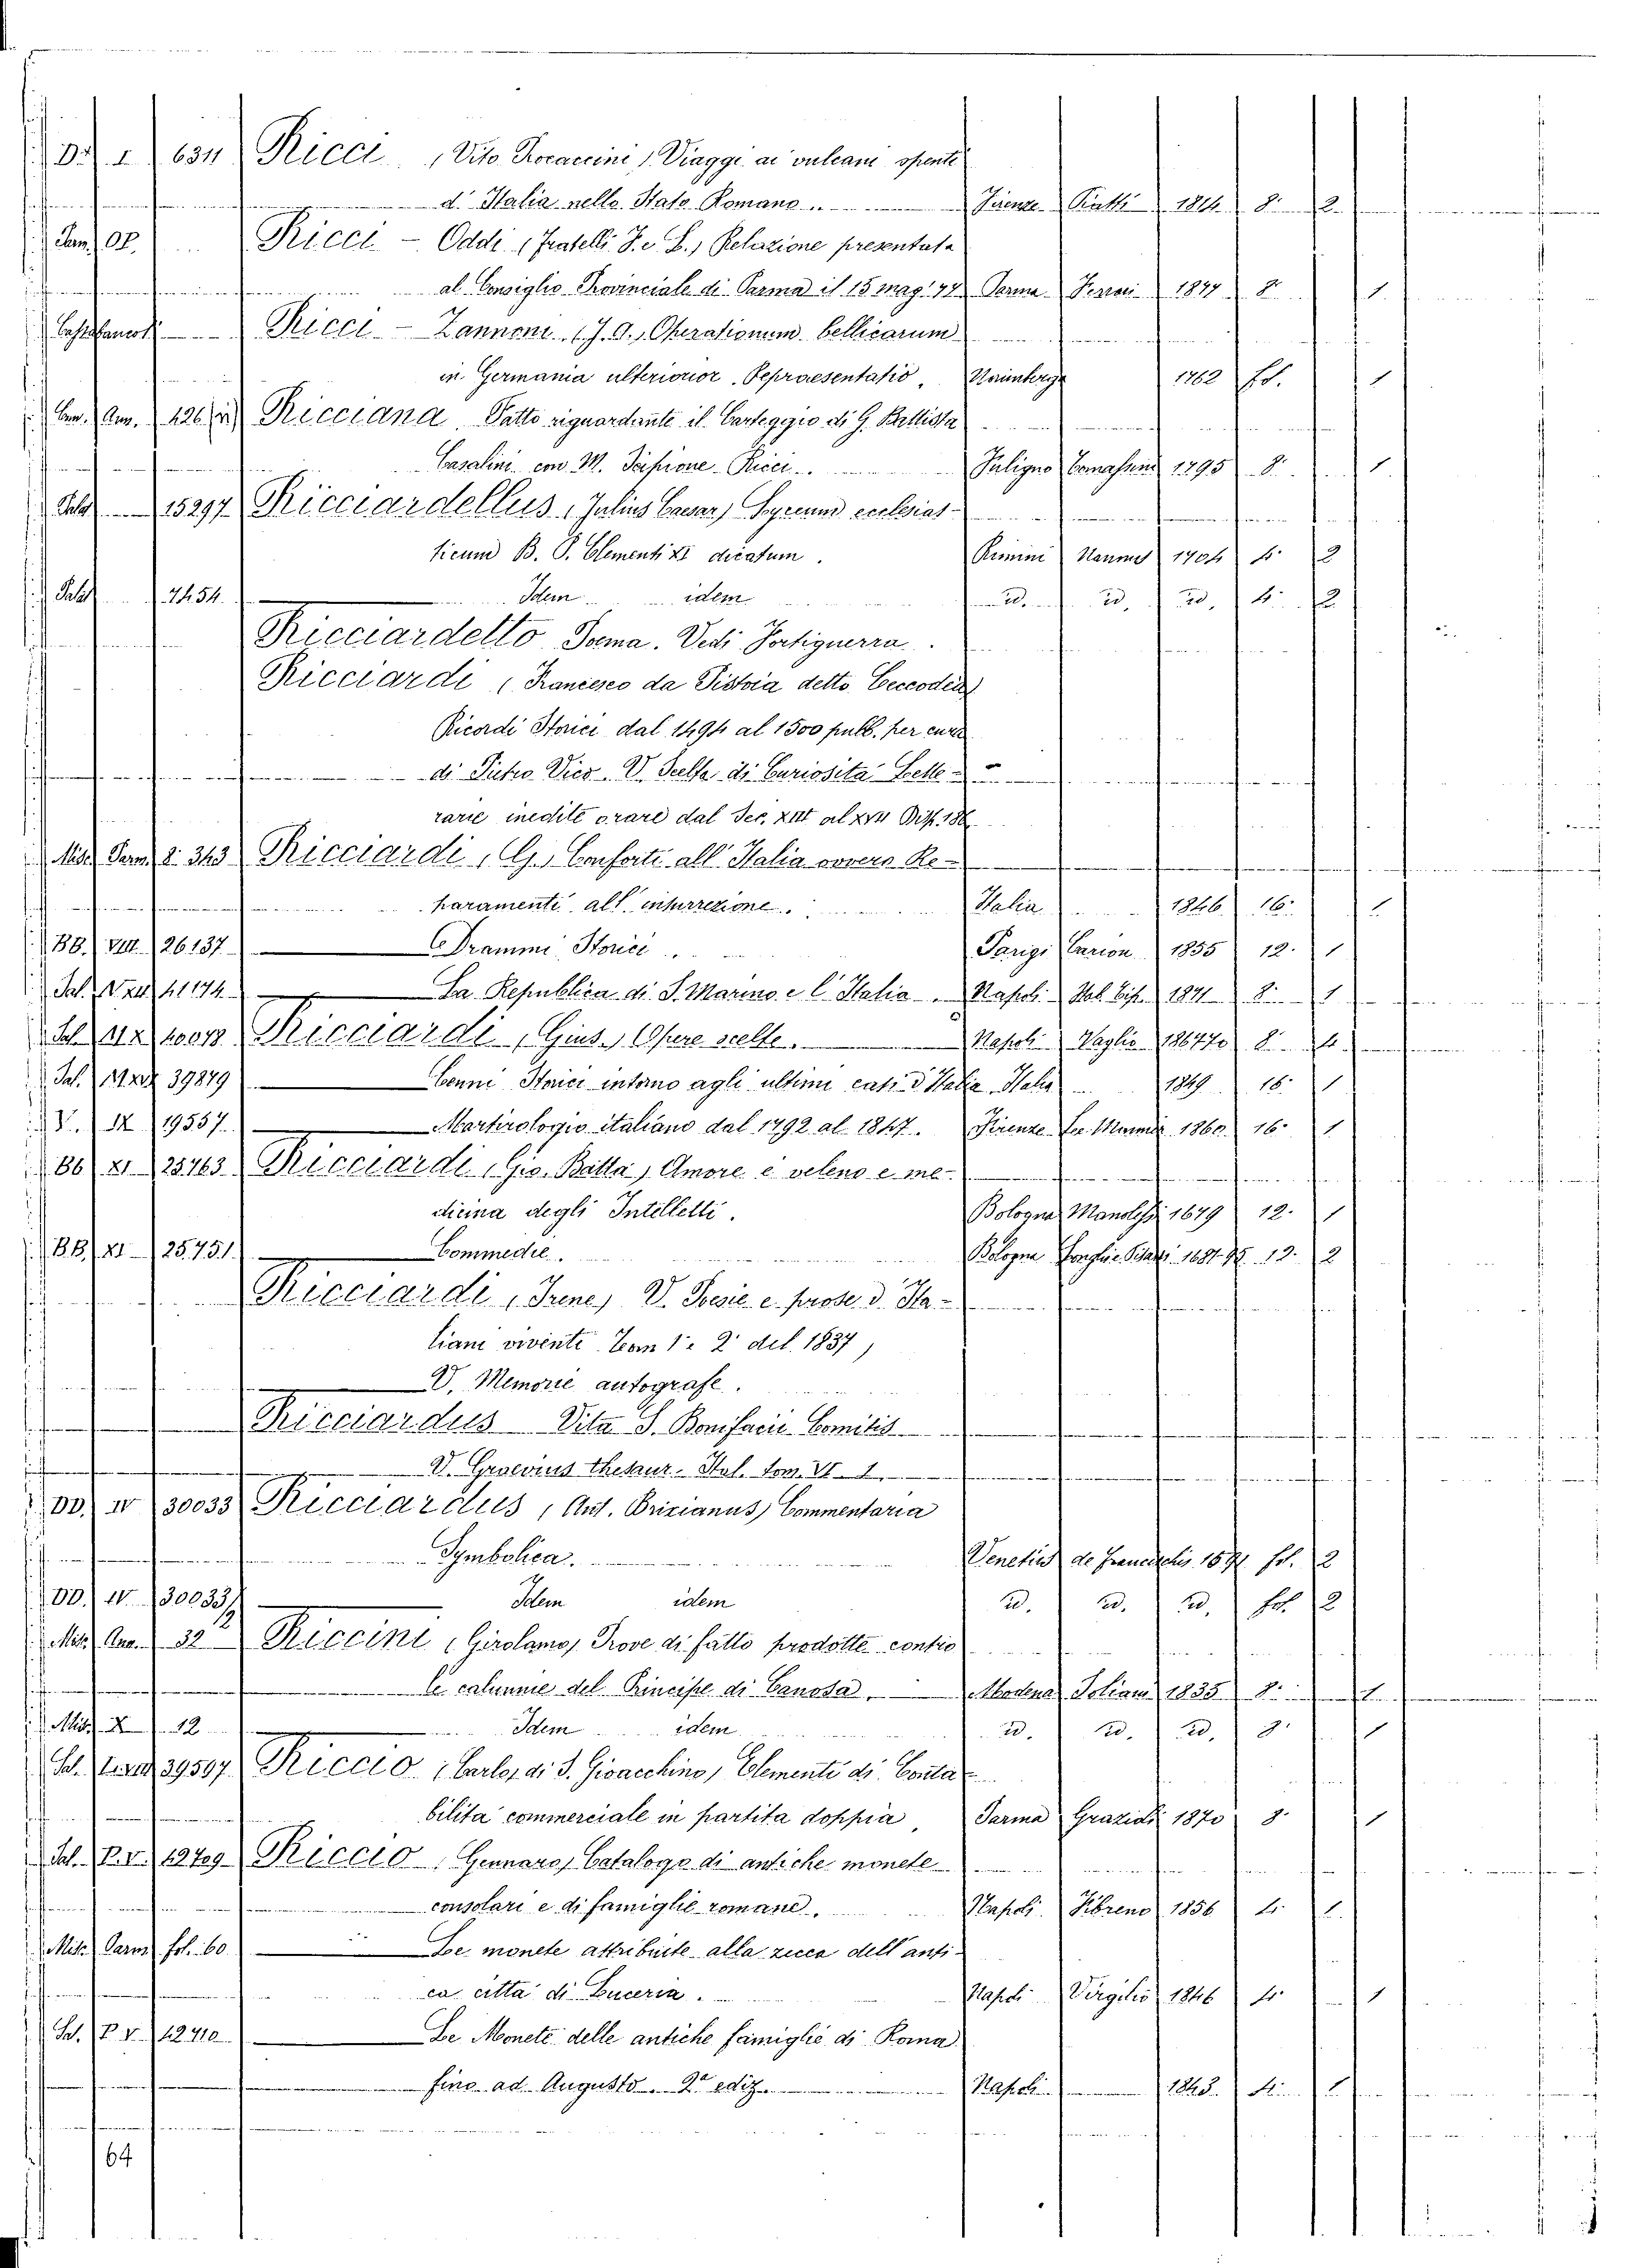 D. I 6311 Ricci (Vito Procaccini) Viaggi ai vulcani spenti
d'Italia nello Stato Romano Firenze 1814 8. 2
Parm. OP. Ricci - Oddi (Fratelli F. e L.) Relazione presentata
al Consiglio Provinciale di Parma il 15 mag. 77 Parma Ferrari 1877 8. 1
Ricci - Zannoni (J. A.) Operationum bellicarum
in Germania ulteriorior Repraesentatio. Nürnberg 1762 fol. 1
Ricciana Patto riguardante il Carteggio di G. Battista
Casalini con M. Scipione Ricci Fuligno 1795 8. 1
Palat 15297 Ricciardellus (Julius Caesar) Lyceum ecclesias-
ticum B. P. Clementi XI dicatum. Rimini 1704 4. 2
Palat 7454 Idem idem id. id. id. 4. 2
Ricciardetto Poema. Vedi Fortiguerra.
Ricciardi (Francesco da Pistoia detto Ceccodea)
Ricordi Storici dal 1494 al 1500 pubb. per cura
di Pietro Vigo. V. Scelta di Curiosità Lette-
rarie inedite o rare dal Sec. XIII al XVII Disp. 186
Misc. Parm. 8. 343 Ricciardi (G.) Conforti all'Italia ovvero Re-
paramenti all'insurrezione. Italia 1846 16. 1
BB. VIII 26137 Drammi Storici Parigi Carion 1855 12. 1
Sal. 41174 La Republica di S. Marino e l'Italia. Napoli 1871 8. 1
Ricciardi (Gius.) Opere scelte. Napoli Vaglio 1867 70 8. 4
Sal. 39879 Cenni Storici intorno agli ultimi casi d'Italia Italia 1849 16. 1
V. IX 19557 Martirologio italiano dal 1792 al 1847. Firenze Le Monnier 1860 16. 1
BB XI 25763 Ricciardi (Gio. Batta) Amore è veleno e me-
dicina degli Intelletti. Bologna Manolessi 1679 12. 1
BB XI 25751 Commedie. Bologna Longhi e 12. 2
Ricciardi (Irene) V. Poesie e prose d'Ita-
liani viventi Tom 1. e 2. del 1837,
V. Memorie autografe.
Ricciardus Vita S. Bonifacii Comitis
V. Graevius Thesaur. Ital. tom. VI 1.
DD. IV 30033 Ricciardus (Ant. Brixianus) Commentaria
Symbolica. Venetiis de Franciscis 1591 fol. 2
DD. IV 30033/2 Idem idem id. id. id. fol. 2
Misc. 32 Riccini (Girolamo) Prove di fatto prodotte contro
le calunnie del Principe di Canosa. Modena Soliani 1835 8. 1
Misc. X 12 Idem idem id. id. id. 8. 1
39597 Riccio (Carlo, di S. Gioacchino) Elementi di Conta-
bilità commerciale in partita doppia Parma Grazioli 1870 8. 1
Sal. P. V. 42709 Riccio (Gennaro) Catalogo di antiche monete
consolari e di famiglie romane. Napoli Fibreno 1856 4. 1
Misc. Parm. fol. 60 Le monete attribuite alla zecca dell'anti-
ca città di Luceria. Napoli Virgilio 1846 4. 1
Sal. P. V. 42710 Le Monete delle antiche famiglie di Roma
fino ad Augusto. 2a ediz. Napoli 1843. 4. 1
64